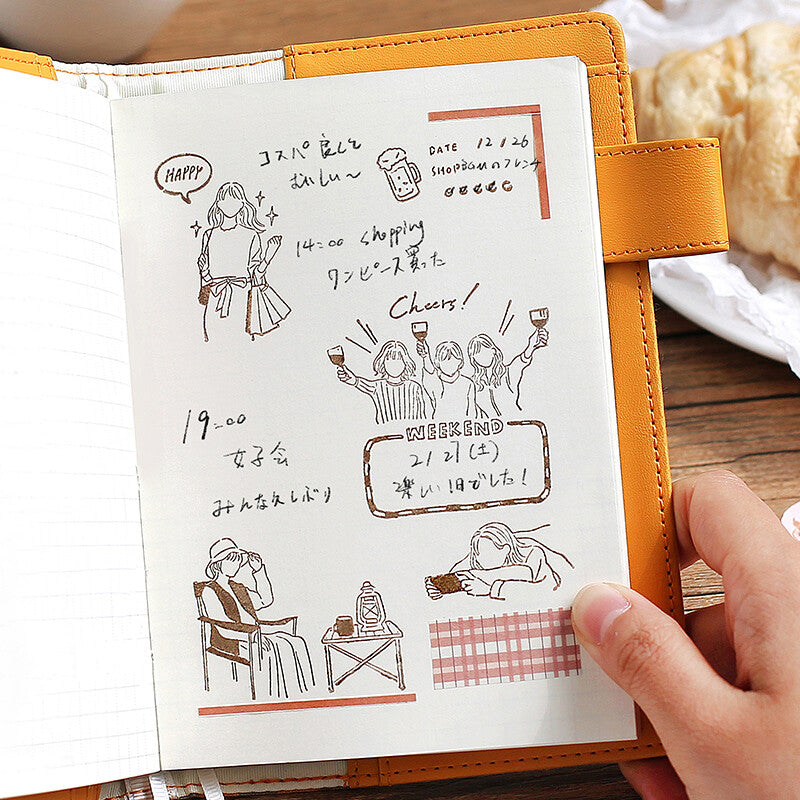 コスパ良しで
おいしい〜
DATE 12/26
SHOP 銀座のフレンチ
HAPPY
14:00 shopping
ワンピース買った
Cheers!
19:00
女子会
みんな久しぶり
WEEKEND
2/27(土)
楽しい1日でした!